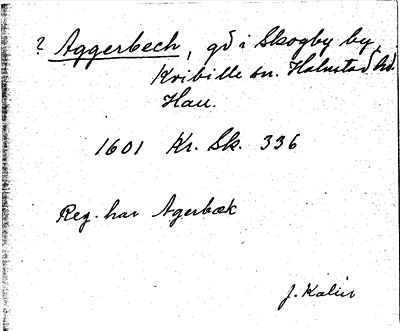 ? Aggerbech, gd i Skogby by,
Kvibille sn. Halmstad hd.
Hall.
1601 Kr. Sk. 336
Reg. har Agerbæk
J. Kalén